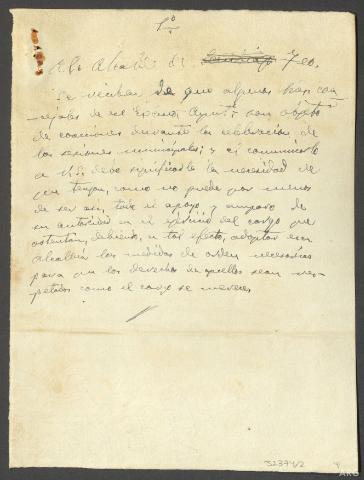 1º
Al Alcalde de Santiago Teo.
de que algunos Sres. con
cejales de ese Excmo. Ayunt. son objeto
de coacciones durante la celebracion de
las sesiones municipales; y al comunicarlo
a V.S. debo significarle la necesidad de
que tengan, como no puede por menos
de ser asi, todo el apoyo y amparo de
su autoridad en el ejercicio del cargo que
ostentan, debiendo, a tal efecto, adoptar esa
Alcaldia las medidas de orden necesarias
para que los derechos de aquellos sean res-
petados como el cargo se merece
32374/2